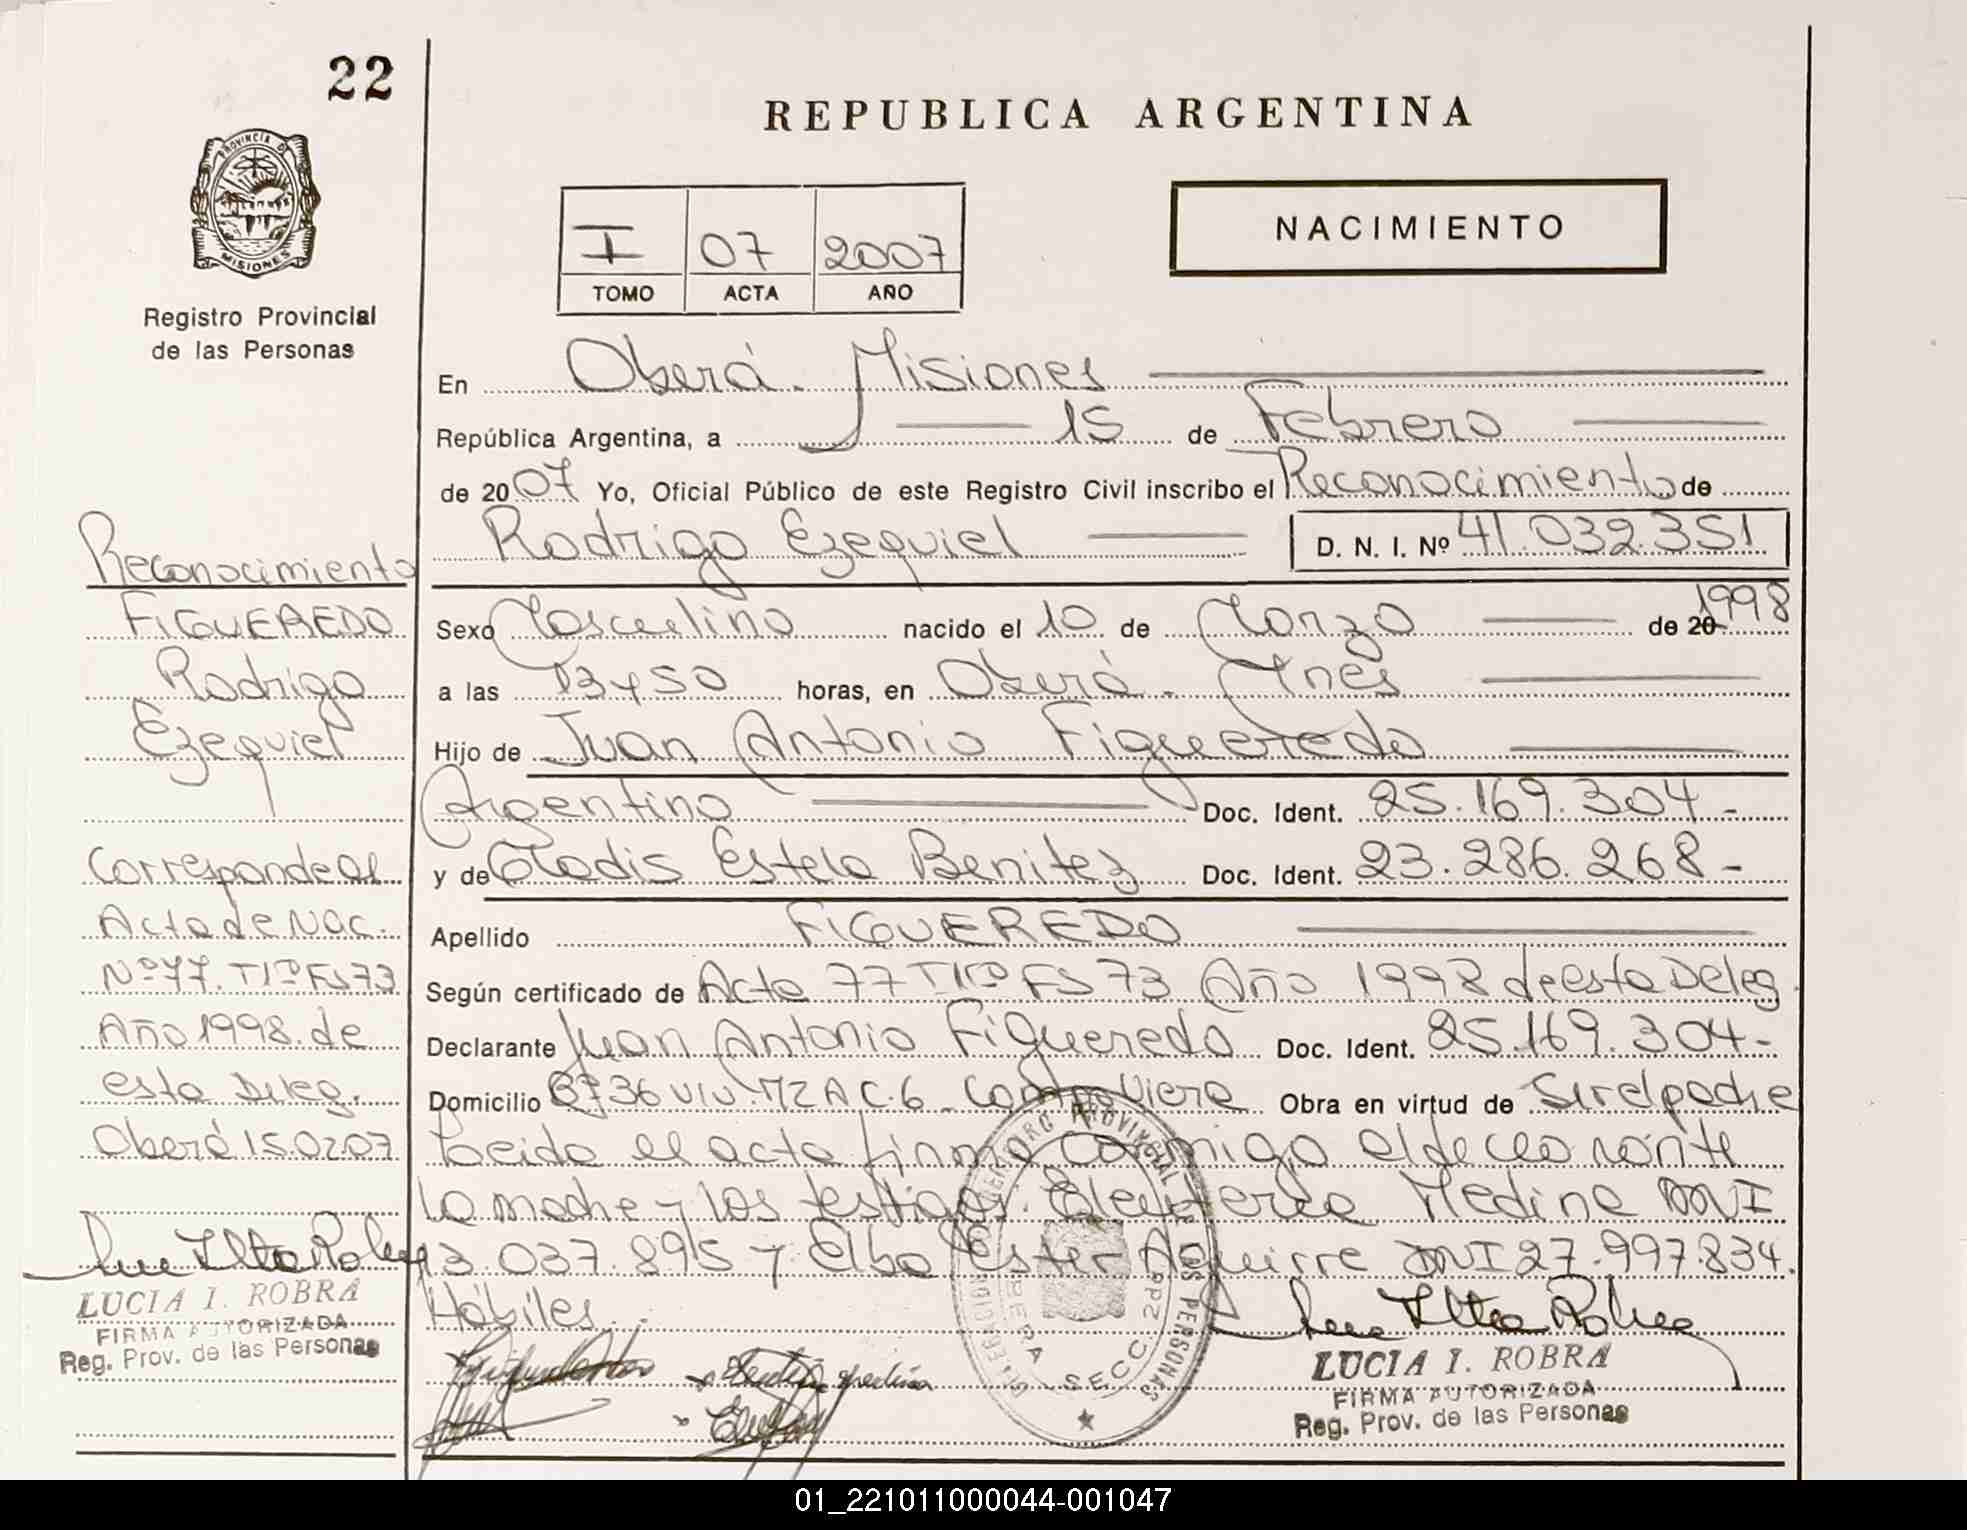 22
PROVINCIA DE
MISIONES
Registro Provincial
de las Personas
REPUBLICA ARGENTINA
I 07 2007
TOMO ACTA AÑO
NACIMIENTO
En Oberá. Misiones
República Argentina, a 15 de Febrero
de 2007 Yo, Oficial Público de este Registro Civil inscribo el Reconocimiento de
Rodrigo Ezequiel D. N. I. Nº 41.032.351
Sexo Masculino nacido el 10 de Marzo de 20 1998
a las 13 y 50 horas, en Oberá. Mnes
Hijo de Juan Antonio Figueredo
Argentino Doc. Ident. 25.169.304-
y de Gladis Estela Benitez Doc. Ident. 23.286.268-
Apellido FIGUEREDO
Según certificado de Acta 77 TIº FS 73 Año 1998 de esta Deleg.
Declarante Juan Antonio Figueredo Doc. Ident. 25.169.304-
Domicilio Bº 36 VIV. MZ A C.6 Viera Obra en virtud de Ser el padre
Leida el acta firma conmigo el declarante
la madre y los testigos. Eleuteria Medina DNI
13.037.895 y Elba Ester Aguirre DNI 27.997.834.
Hábiles.
Reconocimiento
FIGUEREDO
Rodrigo
Ezequiel
Corresponde al
Acta de Nac.
Nº 77. TIº FS 73
Año 1998. de
esta Deleg.
Oberá 15.02.07
LUCIA I. ROBRA
FIRMA AUTORIZADA
Reg. Prov. de las Personas
PROVINCIAL DE LAS PERSONAS
SECC. 2da
LUCIA I. ROBRA
FIRMA AUTORIZADA
Reg. Prov. de las Personas
01_221011000044-001047